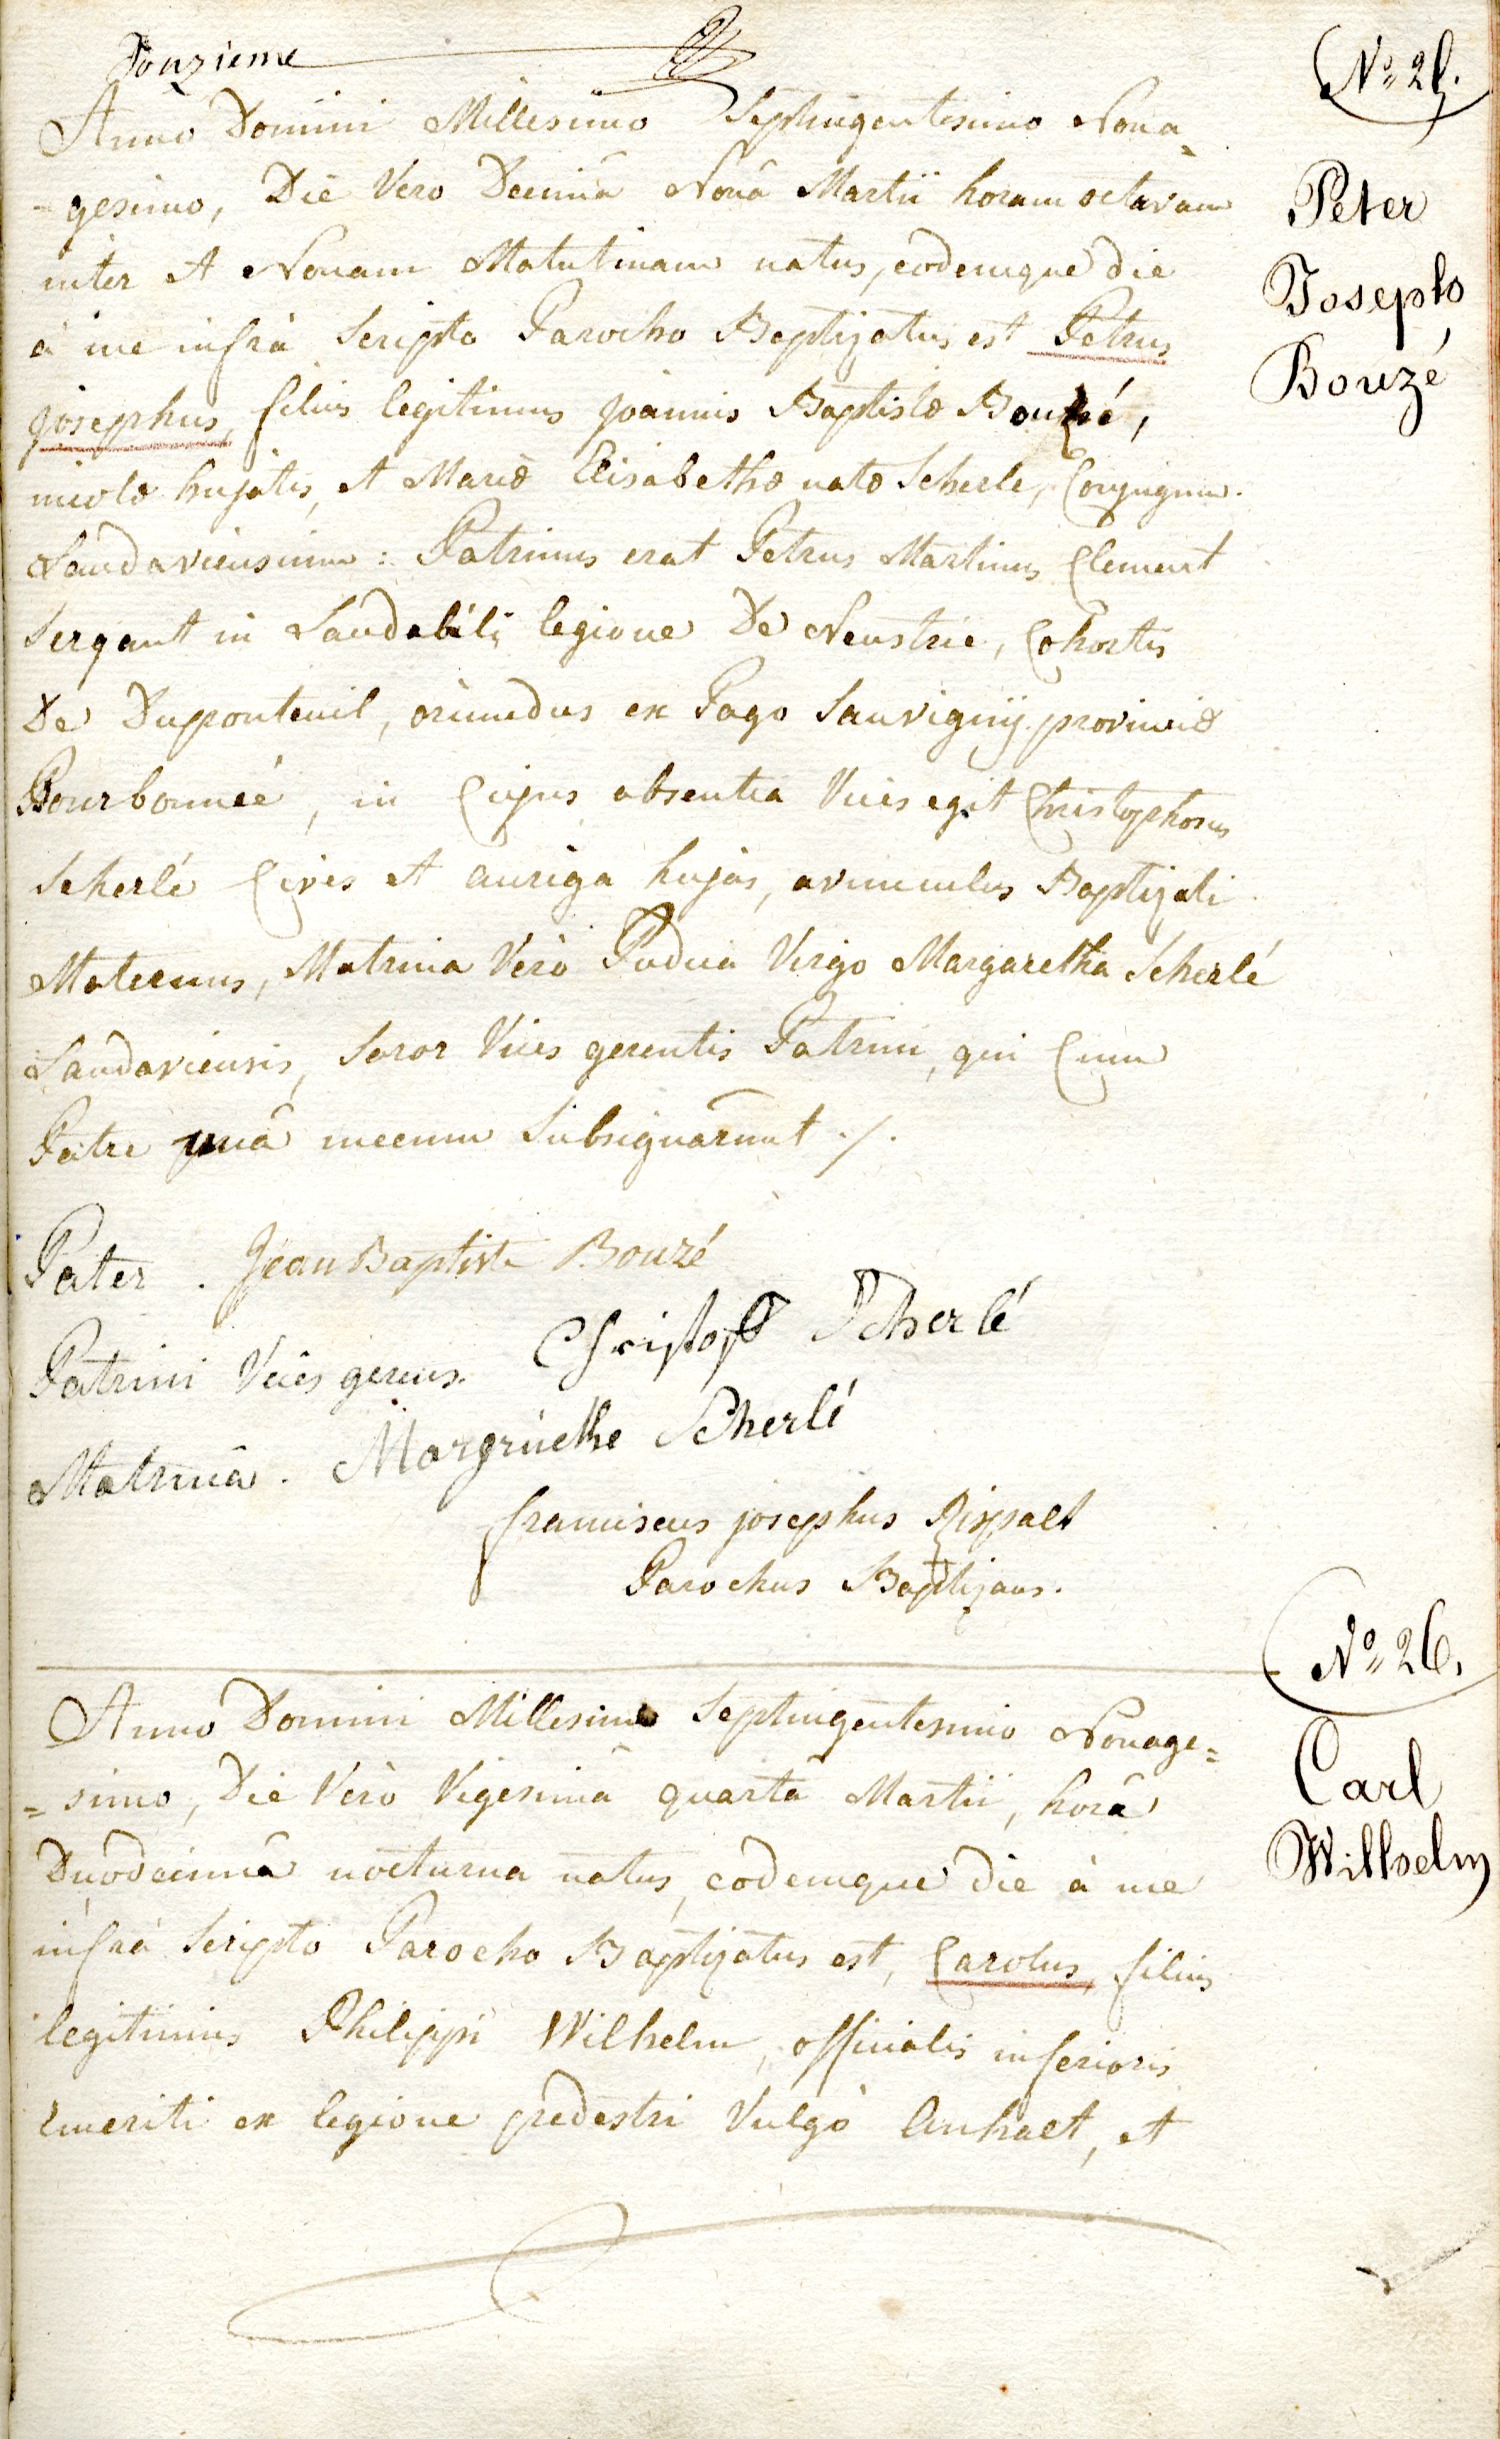 Douzieme
Anno Domini Millesimo Septingentesimo Nona=
=gesimo, Die Vero Decimâ Nonâ Martii horam octavam
inter et Nonam Matutinam natus, eodemque die
à me infrà Scripto Parocho Baptizatus est Petrus
josephus, filius legitimus joannis Baptistæ Bouzé,
incolæ hujatis, et Mariæ Elisabethæ natæ Scherle, Conjugum
Landaviensium : Patrinus erat Petrus Martinus Clement
Sergant in Laudabili legione De Neustrie, Cohortis
De Duponteuil, oriundus ex Pago Sauvignij provinciæ
Bourbonneé, in Cujus absentia Vices egit Christophorus
Scherlé Civis et auriga hujas, avunculus Baptizati
Maternus, Matrina Verò Pudica Virgo Margaretha Scherlé
Landaviensis, Soror Vices gerentis Patrini, qui Cum
Patre unâ mecum Subsignarunt ./.
Pater . Jean Baptiste Bouzé
Patrini Vices gerens. Christoff Scherlé
Matrina . Margrùethe Scherlé
franciscus josephus Rispalt
Parochus Baptizans.
Anno Domini Millesimo Septingentesimo Nonage=
=simo, Die Verò Vigesimâ quartâ Martii, horâ
Duodecimâ nocturna natus, eodemque die à me
infrà Scripto Parocho Baptizatus est, Carolus, filius
legitimus Philippi Wilhelm, officialis inferioris
Emeriti ex legione pedestri Vulgò Anhalt, et
Peter
Joseph
Bouzé
Nº 26.
Carl
Wilhelm